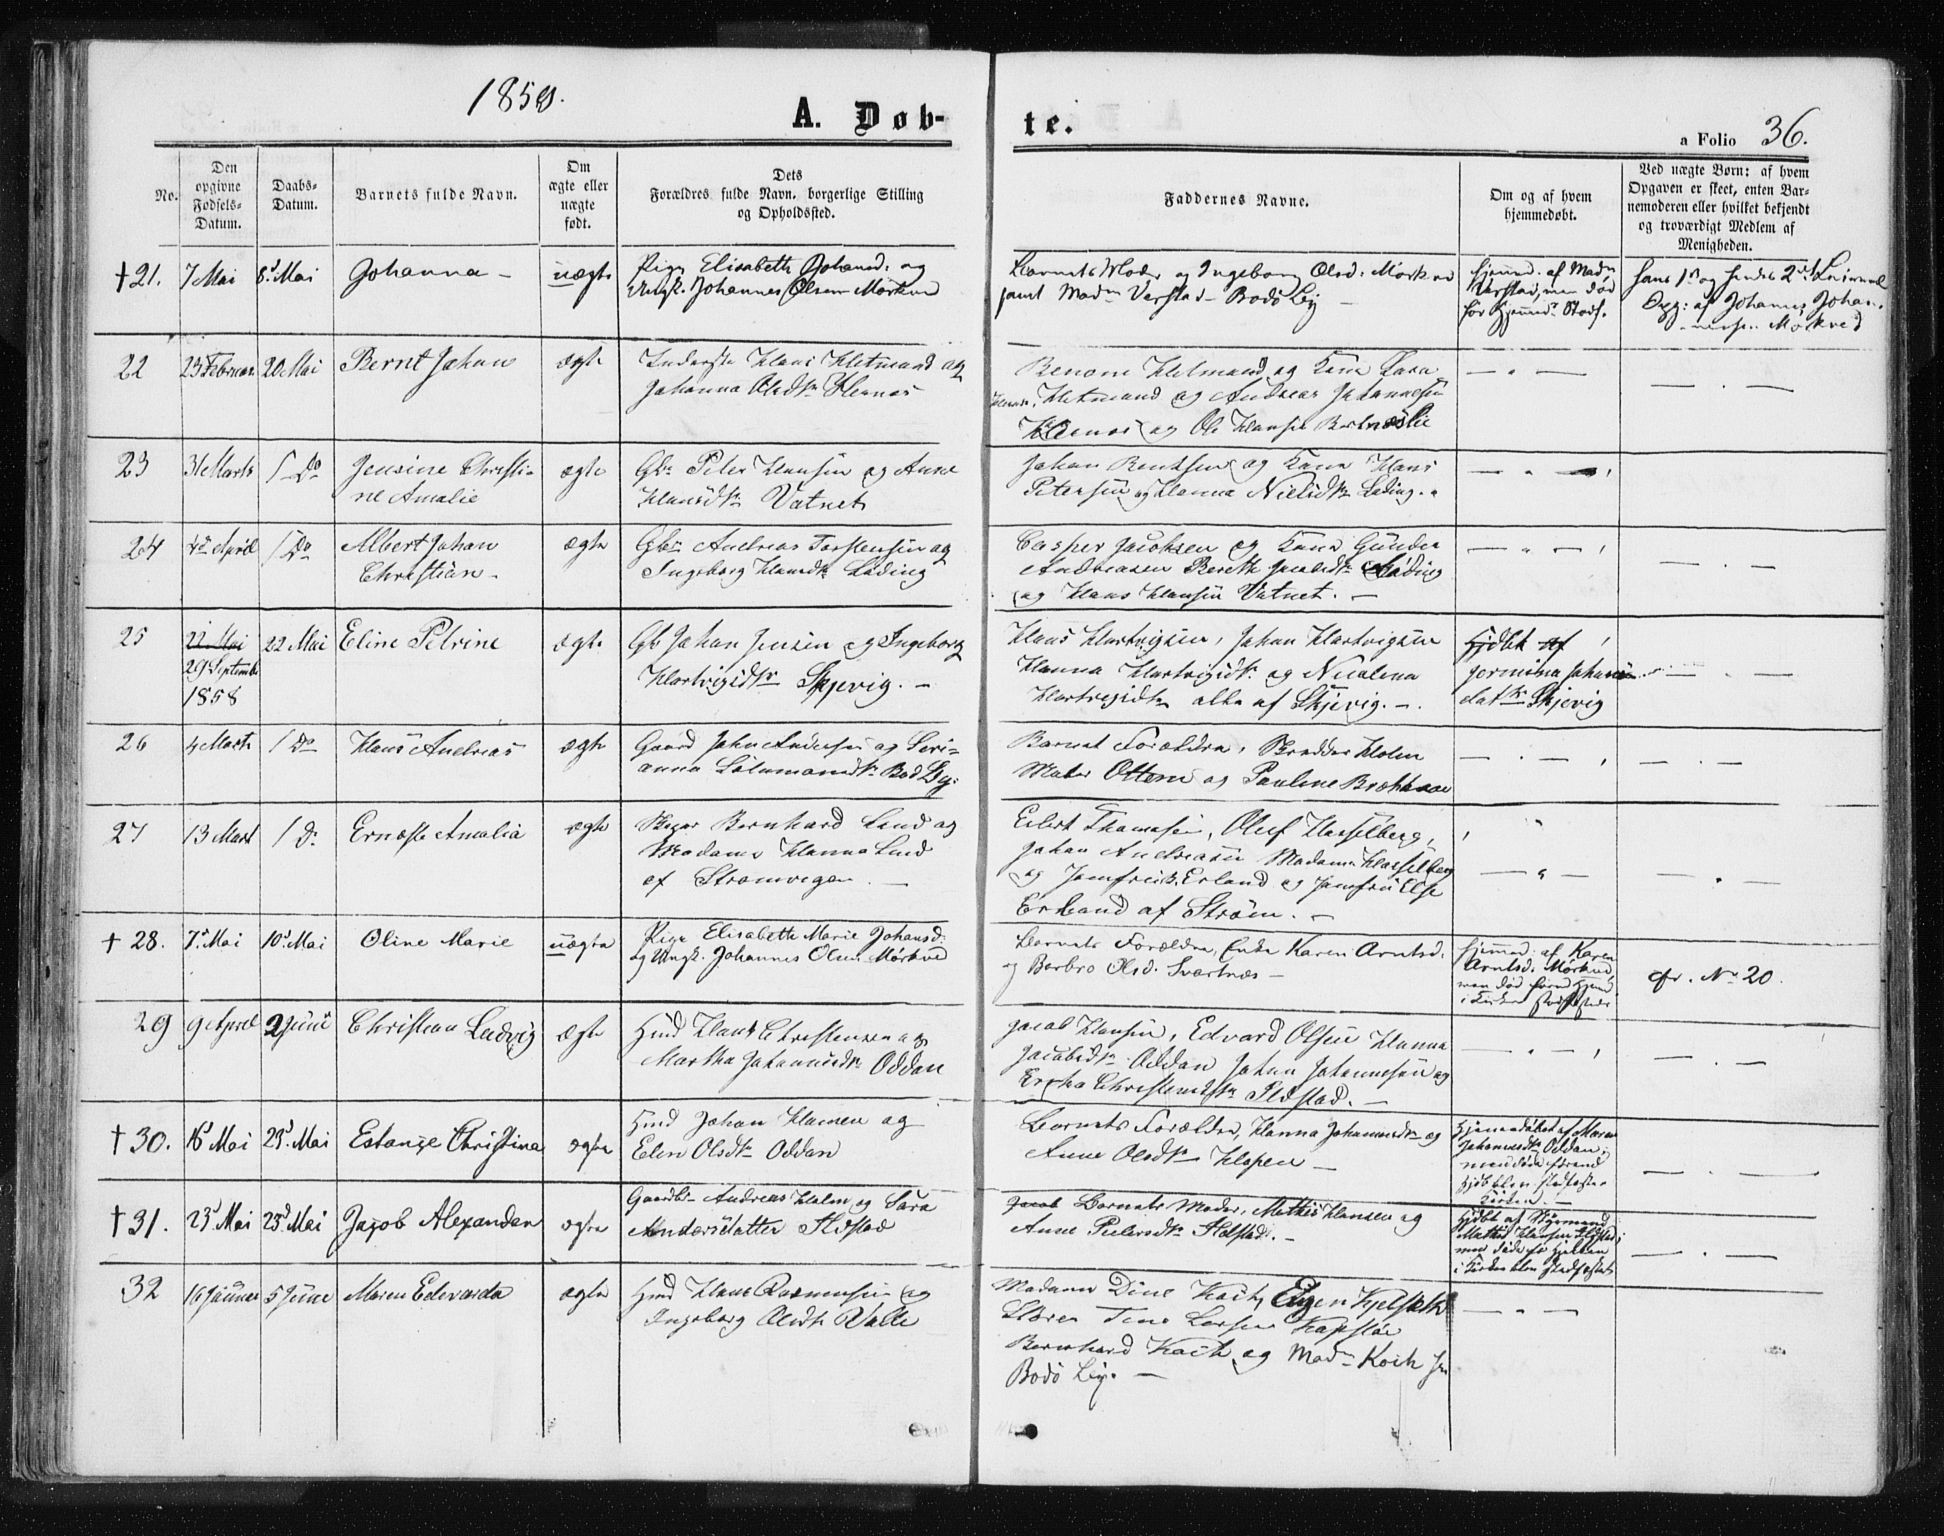 1859.
A. Døb-
te.
a Folio 36.
No.
Den
opgivne
Fødsels-
Datum.
Daabs-
Datum.
Barnets fulde Navn.
Om
ægte eller
uægte
født.
Dets
Forældres fulde Navn, borgerlige Stilling
og Opholdssted.
Faddernes Navne.
Om og af hvem
hjemmedøbt.
Ved uægte Børn: af hvem
Opgaven er skeet, enten Bar-
nemoderen eller hvilket bekjendt
og troværdigt Medlem af
Menigheden.
†21. 7 Mai 8d Mai Johanna – uægte
Pige Elisabeth Johansd: og
Ungk. Johannes Olsen Mörkved
Barnets Moder og Ingeborg Olsd: Mörkved
samt Madm Verstad – Bodö By –
hjemmed: af Madm
Verstad, men död
før Hjemmed: Stadf.
hans 1st og hendes 2det Leiermaal
Opg: af Johannes Johan-
nesse. Mörkved
22 23 Februar 20 Mai Bernt Johan ægte
Inderste Hans Hetmand og
Johanna Olsdtr Hernæs
Benoni Hetmand og Kone
Hetmand og Andreas Johannesen
og Ole Hansen
23 31 Marts / Do Jensine Christi-
ne Amalie ægte
Gbr Peter Hansen og Anne
Hansdtr Vatnet
Johan Bentsen og Kone Hans
Petersen og Hanna Nielsdtr Löding.
24 4de April / Do Albert Johan
Christian – ægte
Gbr Andreas Torstensen og
Ingeborg Hansdtr Löding
Casper Jacobsen og Kone Gunder
Andreasen Bereth Jacobsdtr Löding
og Hans Hansen Vatnet. –
25 22 Mai
29 Septemb
1858
22 Mai Eline Petrine ægte
Gb Johan Jensen og Ingeborg
Hartvigsdtr Skjevig. –
Hans Hartvigsen, Johan Hartvigsen
Hanna Hartvigsdtr og Nicoline
Hartvigsdtr alle af Skjevig. –
Hjdbt af
Jormina Johannes-
datter Skjevig
26 4 Marts / Do Hans Andreas ægte
Gaard John Andersen og Seri-
anna Salamonsdtr Bod By.
Barnets Forældre, Skrædder Holm
Mater Ottern og Pauline
27 13 Mart / Do Ernæste Amalia ægte
Bernhard Lund og
Madame Hanna Lund
af Stromvegen –
Eilert Thomasen, Oluf Hasselberg,
Johan Andreasen Madame Hasselberg
og Jomfru B. Erland og Jomfru Else
Erland af Ström. –
† 28. 7d Mai 10d Mai Oline Marie uægte
Pige Elisabeth Marie Johansd:
og Ungk. Johannes Olsen Mörkved
Barnets Forældre, Enke Karen Arntsd.
og Berbro Olsd. Svartnæs –
hjemmed: af Karen
Arntsd. Mörkved,
men död förend Hjemd
i Kirken stadfæstedes
cfr. No 20.
29 9 April 2 Juni Christian Ludvig ægte
Hmd Hans Christensen og
Martha Johannesdtr Oddan
Jacob Hansen, Edvard Olsen Hanna
Jacobsdtr Oddan Johan Johannesen og
Christensdtr Ildstad. –
†30. 16d Mai 23d Mai Estange Christina ægte
Hmd Johan Hansen og
Elen Olsdtr Oddan
Barnets Forældre, Hanna Johannesdtr og
Anne Olsdtr Hopen –
Hjemmedöbt af Maren
Johannesdtr Oddan,
men döde förend
Hjdb blev stadfæstet i
Kirken. –
†31. 23d Mai 25d Mai Jacob Alexander ægte
Gaardbr Andreas Holm og Sara
Andersdatter Ildstad
Jacob Barnets Moder, Mathis Hansen og
Anne Pedersdtr Ildstad. –
Hjdbt af Styrmand
Mathis Hansen Ildstad,
men döde för Hjdben
i Kirken blev stadfæstet
32 16 Januar 5 Juni Maren Edvarda ægte
Hmd Hans Rasmussen og
Ingeborg Olsdtr Valle
Madame Dine Koch,
Tine Larsen
Bernhard Koch og Madm Koch
Bodö By. –